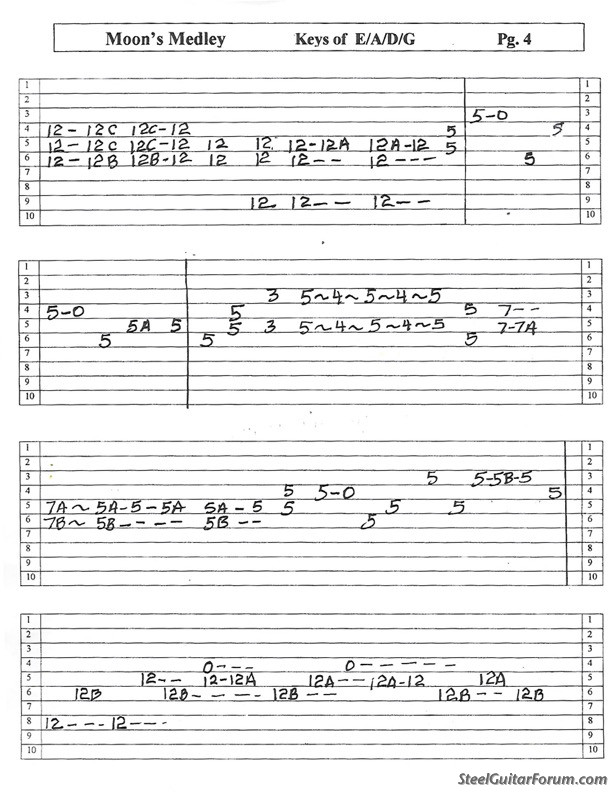 Moon's Medley Keys of E/A/D/G Pg. 4
1 1
2 2
3 5-0 3
4 12- 12C 12C-12 5 5 4
5 12- 12C 12C-12 12 12. 12-12A 12A-12 5 5
6 12- 12B 12B-12 12 12 12 - - 12 - - - 5 6
7 7
8 8
9 12. 12 - - 12 - - 9
10 10
1 1
2 2
3 3 5~4~5~4~5 3
4 5-0 5 5 7 - - 4
5 5A 5 5 3 5~4~5~4~5 7-7A 5
6 5 5 5 6
7 7
8 8
9 9
10 10
1 1
2 2
3 5 5-5B-5 3
4 5 5-0 5 4
5 7A~ 5A-5-5A 5A-5 5 5 5 5
6 7B~ 5B - - - - 5B - - 5 6
7 7
8 8
9 9
10 10
1 1
2 2
3 3
4 0 - - - 0 - - - - - 4
5 12 - - 12-12A 12A - - 12A-12 12A 5
6 12B 12B - - - - 12B - - 12B - - 12B 6
7 7
8 12 - - - 12 - - - 8
9 9
10 10
SteelGuitarForum.com